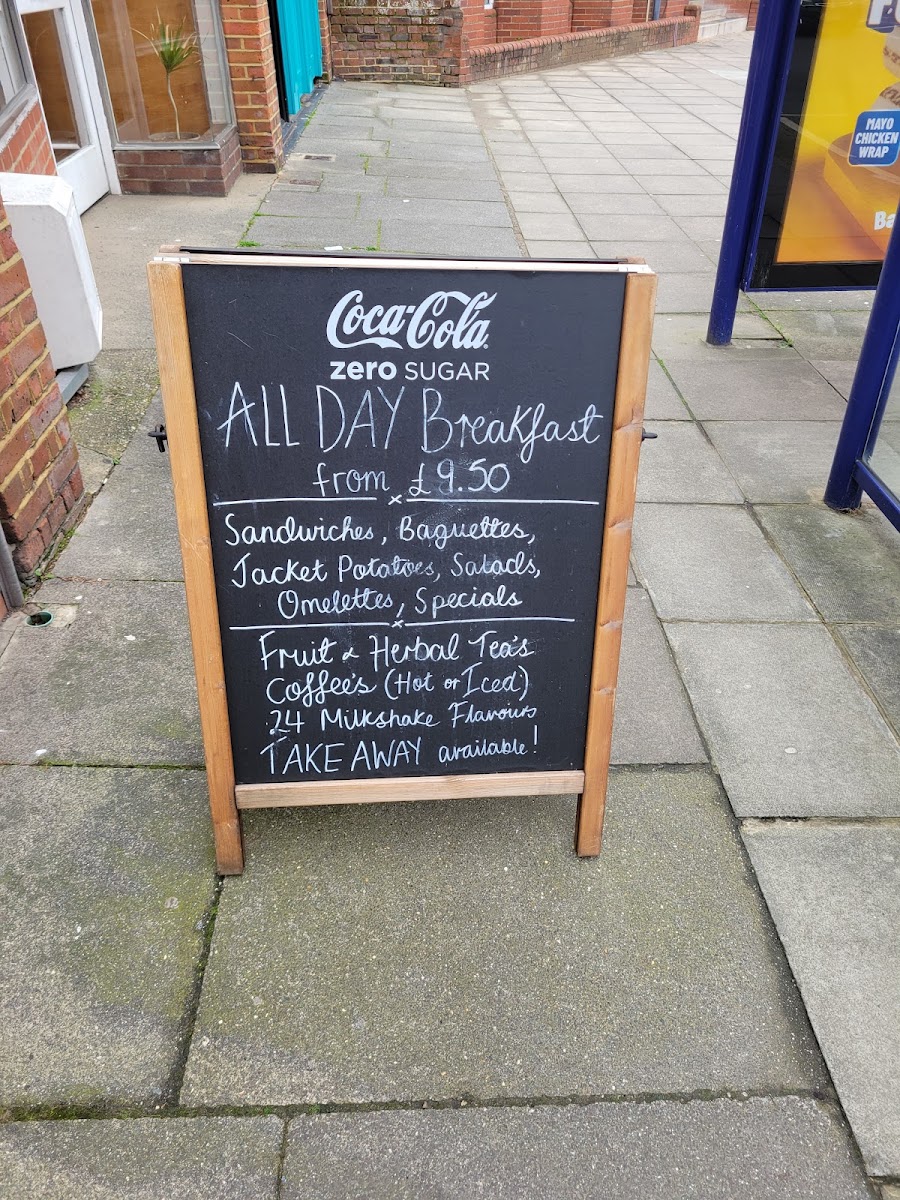 Coca-Cola
zero SUGAR
ALL DAY Breakfast
from £9.50
Sandwiches, Baguettes,
Jacket Potatoes, Salads,
Omelettes, Specials
Fruit & Herbal Tea's
Coffee's (Hot or Iced)
24 Milkshake Flavours
TAKE AWAY available!
MAYO
CHICKEN
WRAP